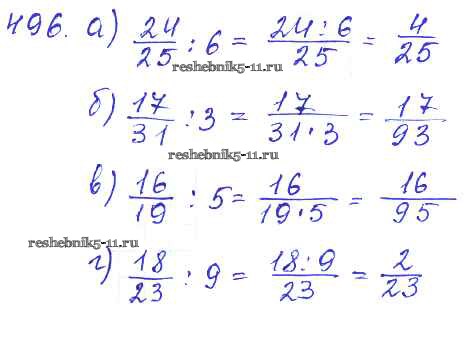 496. а) 24/25 : 6 = 24:6/25 = 4/25
reshebnik5-11.ru
б) 17/31 : 3 = 17/31·3 = 17/93
reshebnik5-11.ru
в) 16/19 : 5 = 16/19·5 = 16/95
reshebnik5-11.ru
г) 18/23 : 9 = 18:9/23 = 2/23